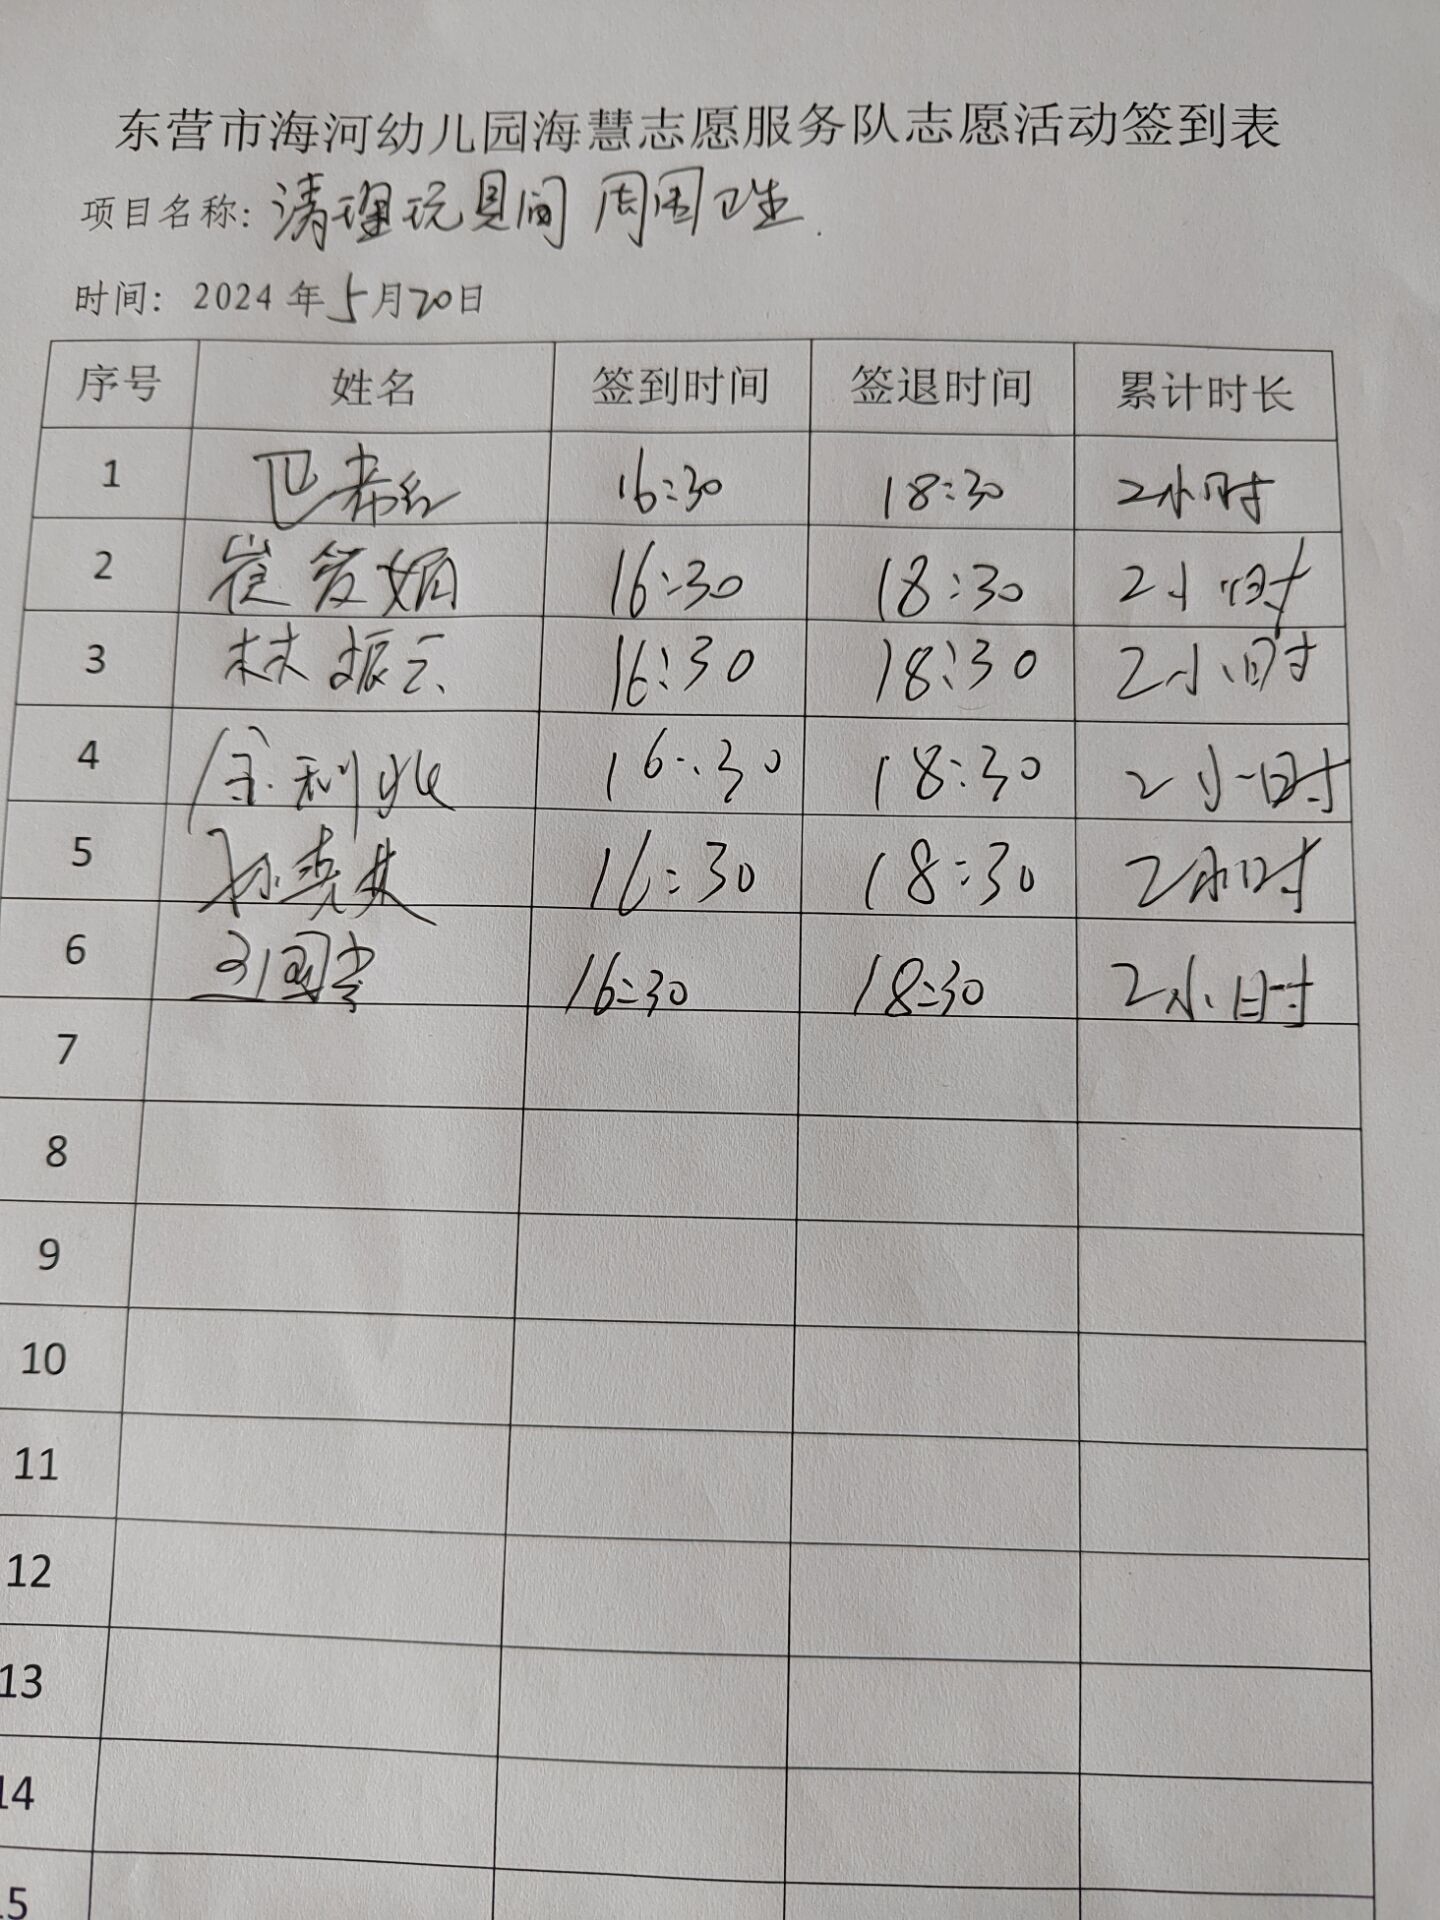 东营市海河幼儿园海慧志愿服务队志愿活动签到表
项目名称: 清理玩具间 周围卫生.
时间: 2024年5月20日
序号 姓名 签到时间 签退时间 累计时长
1 巴希红 16:30 18:30 2小时
2 崔爱娟 16:30 18:30 2小时
3 林振云 16:30 18:30 2小时
4 16:30 18:30 2小时
5 16:30 18:30 2小时
6 16:30 18:30 2小时
7
8
9
10
11
12
13
14
15